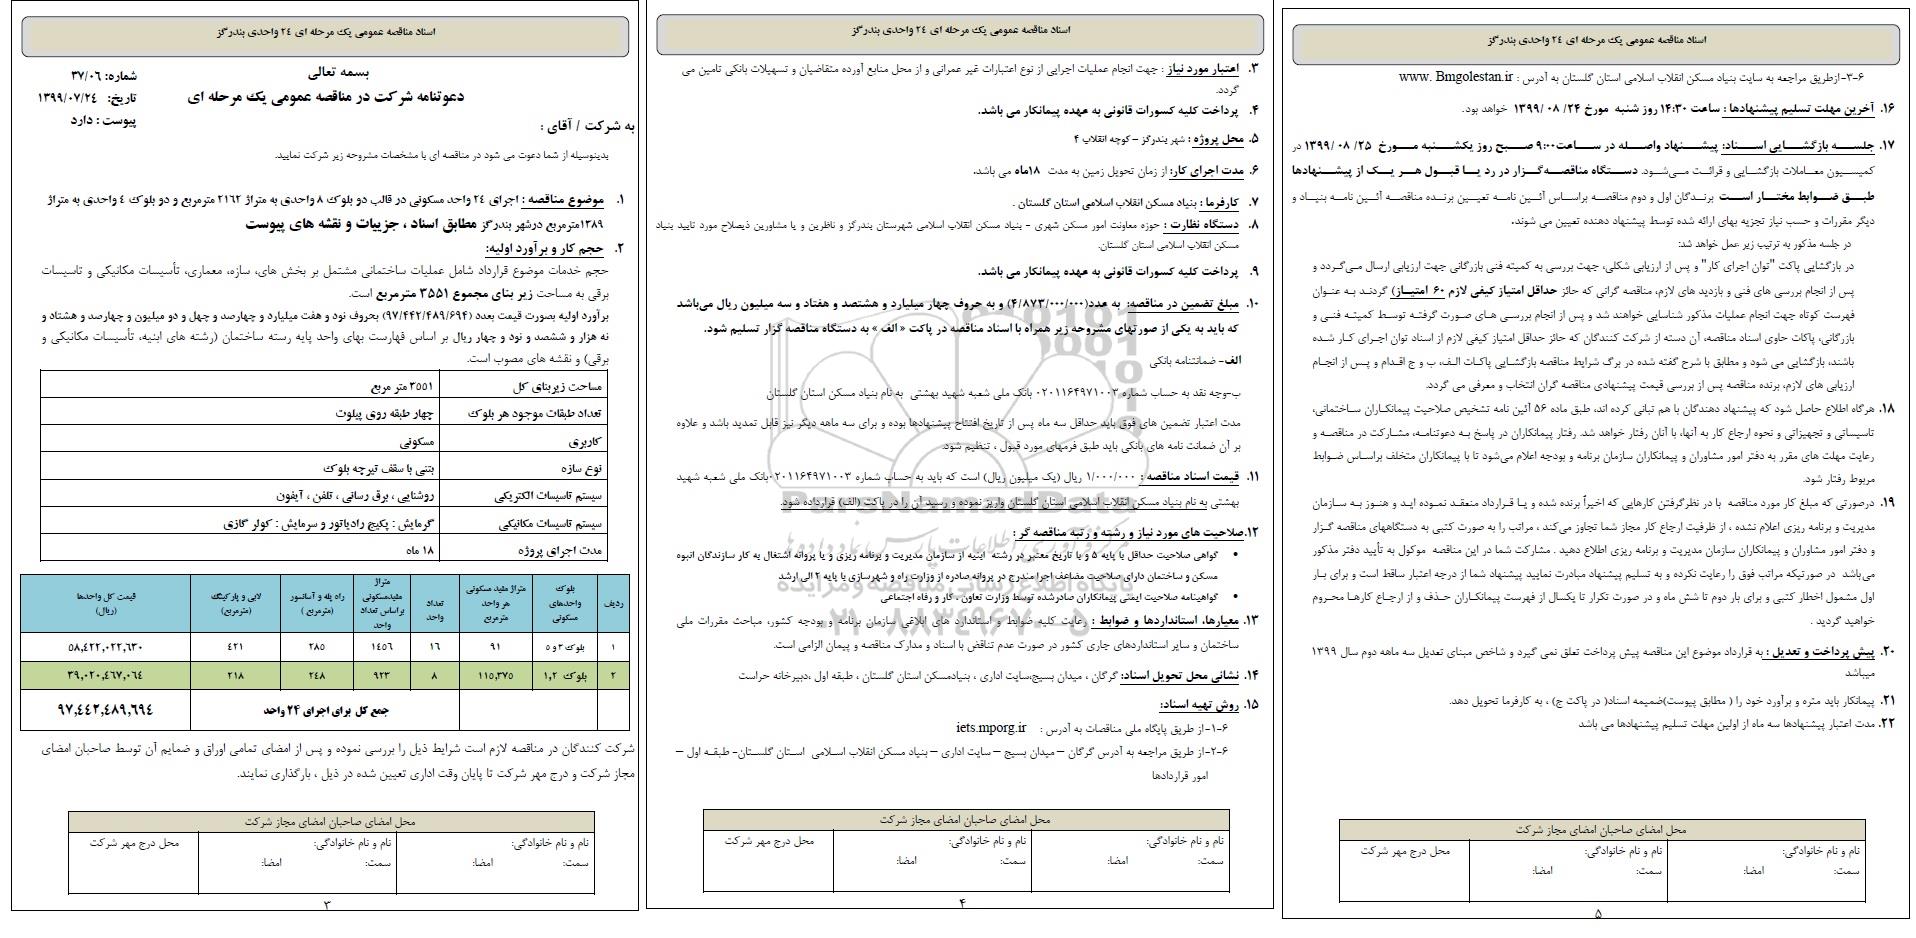 اسناد مناقصه عمومی یک مرحله ای ۲۴ واحدی بندرگز
بسمه تعالی
شماره: ۳۷/۰۶
دعوتنامه شرکت در مناقصه عمومی یک مرحله ای
تاریخ: ۱۳۹۹/۰۷/۲۴
پیوست : دارد
به شرکت / آقای :
بدینوسیله از شما دعوت می شود در مناقصه ای با مشخصات مشروحه زیر شرکت نمایید.
۱. موضوع مناقصه : اجرای ۲۴ واحد مسکونی در قالب دو بلوک ۸ واحدی به متراژ ۲۱۶۲ مترمربع و دو بلوک ۴ واحدی به متراژ
۱۳۸۹مترمربع درشهر بندرگز مطابق اسناد ، جزییات و نقشه های پیوست
۲. حجم کار و برآورد اولیه:
حجم خدمات موضوع قرارداد شامل عملیات ساختمانی مشتمل بر بخش های، سازه، معماری، تأسیسات مکانیکی و تاسیسات
برقی به مساحت زیر بنای مجموع ۳۵۵۱ مترمربع است.
برآورد اولیه بصورت قیمت بعدد (۹۷/۴۴۲/۴۸۹/۶۹۴) بحروف نود و هفت میلیارد و چهارصد و چهل و دو میلیون و چهارصد و هشتاد و
نه هزار و ششصد و نود و چهار ریال بر اساس فهارست بهای واحد پایه رسته ساختمان (رشته های ابنیه، تأسیسات مکانیکی و
برقی) و نقشه های مصوب است.
مساحت زیربنای کل ۳۵۵۱ متر مربع
تعداد طبقات موجود هر بلوک چهار طبقه روی پیلوت
کاربری مسکونی
نوع سازه بتنی با سقف تیرچه بلوک
سیستم تاسیسات الکتریکی روشنایی ، برق رسانی ، تلفن ، آیفون
سیستم تاسیسات مکانیکی گرمایش : پکیج رادیاتور و سرمایش : کولر گازی
مدت اجرای پروژه ۱۸ ماه
ردیف بلوک واحدهای مسکونی متراژ مفید مسکونی هر واحد مترمربع تعداد واحد متراژ مفیدمسکونی براساس تعداد واحد راه پله و آسانسور (مترمربع ) لابی و پارکینگ (مترمربع) قیمت کل واحدها (ریال)
۱ بلوک ۳ و ۵ ۹۱ ۱۶ ۱۴۵۶ ۲۸۵ ۴۲۱ ۵۸,۴۲۲,۰۲۲,۶۳۰
۲ بلوک ۱,۲ ۱۱۵,۳۷۵ ۸ ۹۲۳ ۲۴۸ ۲۱۸ ۳۹,۰۲۰,۴۶۷,۰۶۴
جمع کل برای اجرای ۲۴ واحد ۹۷,۴۴۲,۴۸۹,۶۹۴
شرکت کنندگان در مناقصه لازم است شرایط ذیل را بررسی نموده و پس از امضای تمامی اوراق و ضمایم آن توسط صاحبان امضای
مجاز شرکت و درج مهر شرکت تا پایان وقت اداری تعیین شده در ذیل ، بارگذاری نمایند.
محل امضای صاحبان امضای مجاز شرکت
نام و نام خانوادگی: نام و نام خانوادگی: محل درج مهر شرکت
سمت: امضا: سمت: امضا:
۳
اسناد مناقصه عمومی یک مرحله ای ۲۴ واحدی بندرگز
۳. اعتبار مورد نیاز : جهت انجام عملیات اجرایی از نوع اعتبارات غیر عمرانی و از محل منابع آورده متقاضیان و تسهیلات بانکی تامین می
گردد.
۴. پرداخت کلیه کسورات قانونی به عهده پیمانکار می باشد.
۵. محل پروژه : شهر بندرگز – کوچه انقلاب ۴
۶. مدت اجرای کار: از زمان تحویل زمین به مدت ۱۸ماه می باشد.
۷. کارفرما : بنیاد مسکن انقلاب اسلامی استان گلستان .
۸. دستگاه نظارت : حوزه معاونت امور مسکن شهری - بنیاد مسکن انقلاب اسلامی شهرستان بندرگز و ناظرین و یا مشاورین ذیصلاح مورد تایید بنیاد
مسکن انقلاب اسلامی استان گلستان.
۹. پرداخت کلیه کسورات قانونی به عهده پیمانکار می باشد.
۱۰. مبلغ تضمین در مناقصه: به عدد(۴/۸۷۳/۰۰۰/۰۰۰) و به حروف چهار میلیارد و هشتصد و هفتاد و سه میلیون ریال می‌باشد
که باید به یکی از صورتهای مشروحه زیر همراه با اسناد مناقصه در پاکت « الف » به دستگاه مناقصه گزار تسلیم شود.
الف- ضمانتنامه بانکی
ب-وجه نقد به حساب شماره ۰۲۰۱۱۶۴۹۷۱۰۰۳ بانک ملی شعبه شهید بهشتی به نام بنیاد مسکن استان گلستان
مدت اعتبار تضمین های فوق باید حداقل سه ماه پس از تاریخ افتتاح پیشنهادها بوده و برای سه ماهه دیگر نیز قابل تمدید باشد و علاوه
بر آن ضمانت نامه های بانکی باید طبق فرمهای مورد قبول ، تنظیم شود.
۱۱. قیمت اسناد مناقصه : ۱/۰۰۰/۰۰۰ ریال (یک میلیون ریال) است که باید به حساب شماره ۰۲۰۱۱۶۴۹۷۱۰۰۳بانک ملی شعبه شهید
بهشتی به نام بنیاد مسکن انقلاب اسلامی استان گلستان واریز نموده و رسید آن را در پاکت (الف) قرارداده شود.
۱۲.صلاحیت های مورد نیاز و رشته و رتبه مناقصه گر :
• گواهی صلاحیت حداقل با پایه ۵ و با تاریخ معتبر در رشته ابنیه از سازمان مدیریت و برنامه ریزی و یا پروانه اشتغال به کار سازندگان انبوه
مسکن و ساختمان دارای صلاحیت مضاعف اجرا مندرج در پروانه صادره از وزارت راه و شهرسازی یا پایه ۲ الی ارشد
• گواهینامه صلاحیت ایمنی پیمانکاران صادرشده توسط وزارت تعاون ، کار و رفاه اجتماعی
۱۳. معیارها، استانداردها و ضوابط : رعایت کلیه ضوابط و استاندارد های ابلاغی سازمان برنامه و بودجه کشور، مباحث مقررات ملی
ساختمان و سایر استانداردهای جاری کشور در صورت عدم تناقض با اسناد و مدارک مناقصه و پیمان الزامی است.
۱۴. نشانی محل تحویل اسناد: گرگان ، میدان بسیج،سایت اداری ، بنیادمسکن استان گلستان ، طبقه اول ،دبیرخانه حراست
۱۵. روش تهیه اسناد:
۱-۶-از طریق پایگاه ملی مناقصات به آدرس : iets.mporg.ir
۲-۶-از طریق مراجعه به آدرس گرگان – میدان بسیج – سایت اداری – بنیاد مسکن انقلاب اسلامی استان گلستان- طبقه اول –
امور قراردادها
ParsNamadData
پایگاه اطلاع رسانی مناقصه و مزایده
۰۲۱-۸۸۳۴۹۶۷۰-۵
محل امضای صاحبان امضای مجاز شرکت
نام و نام خانوادگی: نام و نام خانوادگی: محل درج مهر شرکت
سمت: امضا: سمت: امضا:
۴
اسناد مناقصه عمومی یک مرحله ای ۲۴ واحدی بندرگز
۳-۶-ازطریق مراجعه به سایت بنیاد مسکن انقلاب اسلامی استان گلستان به آدرس : www. Bmgolestan.ir
۱۶. آخرین مهلت تسلیم پیشنهادها : ساعت ۱۴:۳۰ روز شنبه مورخ ۲۴/ ۰۸ /۱۳۹۹ خواهد بود.
۱۷. جلسه بازگشایی اسناد: پیشنهاد واصله در ساعت۹:۰۰ صبح روز یکشنبه مورخ ۲۵/ ۰۸ /۱۳۹۹ در
کمیسیون معاملات بازگشایی و قرائت می‌شود. دستگاه مناقصه‌گزار در رد یا قبول هر یک از پیشنهادها
طبق ضوابط مختار است برندگان اول و دوم مناقصه براساس آئین نامه تعیین برنده مناقصه آئین نامه بنیاد و
دیگر مقررات و حسب نیاز تجزیه بهای ارائه شده توسط پیشنهاد دهنده تعیین می شوند.
در جلسه مذکور به ترتیب زیر عمل خواهد شد:
در بازگشایی پاکت "توان اجرای کار" و پس از ارزیابی شکلی، جهت بررسی به کمیته فنی بازرگانی جهت ارزیابی ارسال می‌گردد و
پس از انجام بررسی های فنی و بازدید های لازم، مناقصه گرانی که حائز حداقل امتیاز کیفی لازم (۶۰ امتیاز) گردند به عنوان
فهرست کوتاه جهت انجام عملیات مذکور شناسایی خواهند شد و پس از انجام بررسی های صورت گرفته توسط کمیته فنی و
بازرگانی، پاکات حاوی اسناد مناقصه، آن دسته از شرکت کنندگان که حائز حداقل امتیاز کیفی لازم از اسناد توان اجرای کار شده
باشند، بازگشایی می شود و مطابق با شرح گفته شده در برگ شرایط مناقصه بازگشایی پاکات الف، ب و ج اقدام و پس از انجام
ارزیابی های لازم، برنده مناقصه پس از بررسی قیمت پیشنهادی مناقصه گران انتخاب و معرفی می گردد.
۱۸. هرگاه اطلاع حاصل شود که پیشنهاد دهندگان با هم تبانی کرده اند، طبق ماده ۵۶ آئین نامه تشخیص صلاحیت پیمانکاران ساختمانی،
تاسیساتی و تجهیزاتی و نحوه ارجاع کار به آنها، با آنان رفتار خواهد شد. رفتار پیمانکاران در پاسخ به دعوتنامه، مشارکت در مناقصه و
رعایت مهلت های مقرر به دفتر امور مشاوران و پیمانکاران سازمان برنامه و بودجه اعلام می‌شود تا با پیمانکاران متخلف براساس ضوابط
مربوط رفتار شود.
۱۹. درصورتی که مبلغ کار مورد مناقصه با در نظرگرفتن کارهایی که اخیراً برنده شده و یا قرارداد منعقد نموده اید و هنوز به سازمان
مدیریت و برنامه ریزی اعلام نشده ، از ظرفیت ارجاع کار مجاز شما تجاوز می‌کند ، مراتب را به صورت کتبی به دستگاههای مناقصه گزار
و دفتر امور مشاوران و پیمانکاران سازمان مدیریت و برنامه ریزی اطلاع دهید . مشارکت شما در این مناقصه موکول به تأیید دفتر مذکور
می‌باشد در صورتیکه مراتب فوق را رعایت نکرده و به تسلیم پیشنهاد مبادرت نمایید پیشنهاد شما از درجه اعتبار ساقط است و برای بار
اول مشمول اخطار کتبی و برای بار دوم تا شش ماه و در صورت تکرار تا یکسال از فهرست پیمانکاران حذف و از ارجاع کارها محروم
خواهید گردید .
۲۰. پیش پرداخت و تعدیل : به قرارداد موضوع این مناقصه پیش پرداخت تعلق نمی گیرد و شاخص مبنای تعدیل سه ماهه دوم سال ۱۳۹۹
میباشد
۲۱. پیمانکار باید متره و برآورد خود را ( مطابق پیوست)ضمیمه اسناد( در پاکت ج) ، به کارفرما تحویل دهد.
۲۲. مدت اعتبار پیشنهادها سه ماه از اولین مهلت تسلیم پیشنهادها می باشد
محل امضای صاحبان امضای مجاز شرکت
نام و نام خانوادگی: نام و نام خانوادگی: محل درج مهر شرکت
سمت: امضا: سمت: امضا:
۵